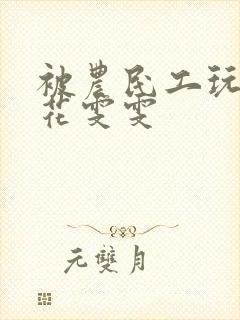 被農民工玩
花雯雯
元雙月